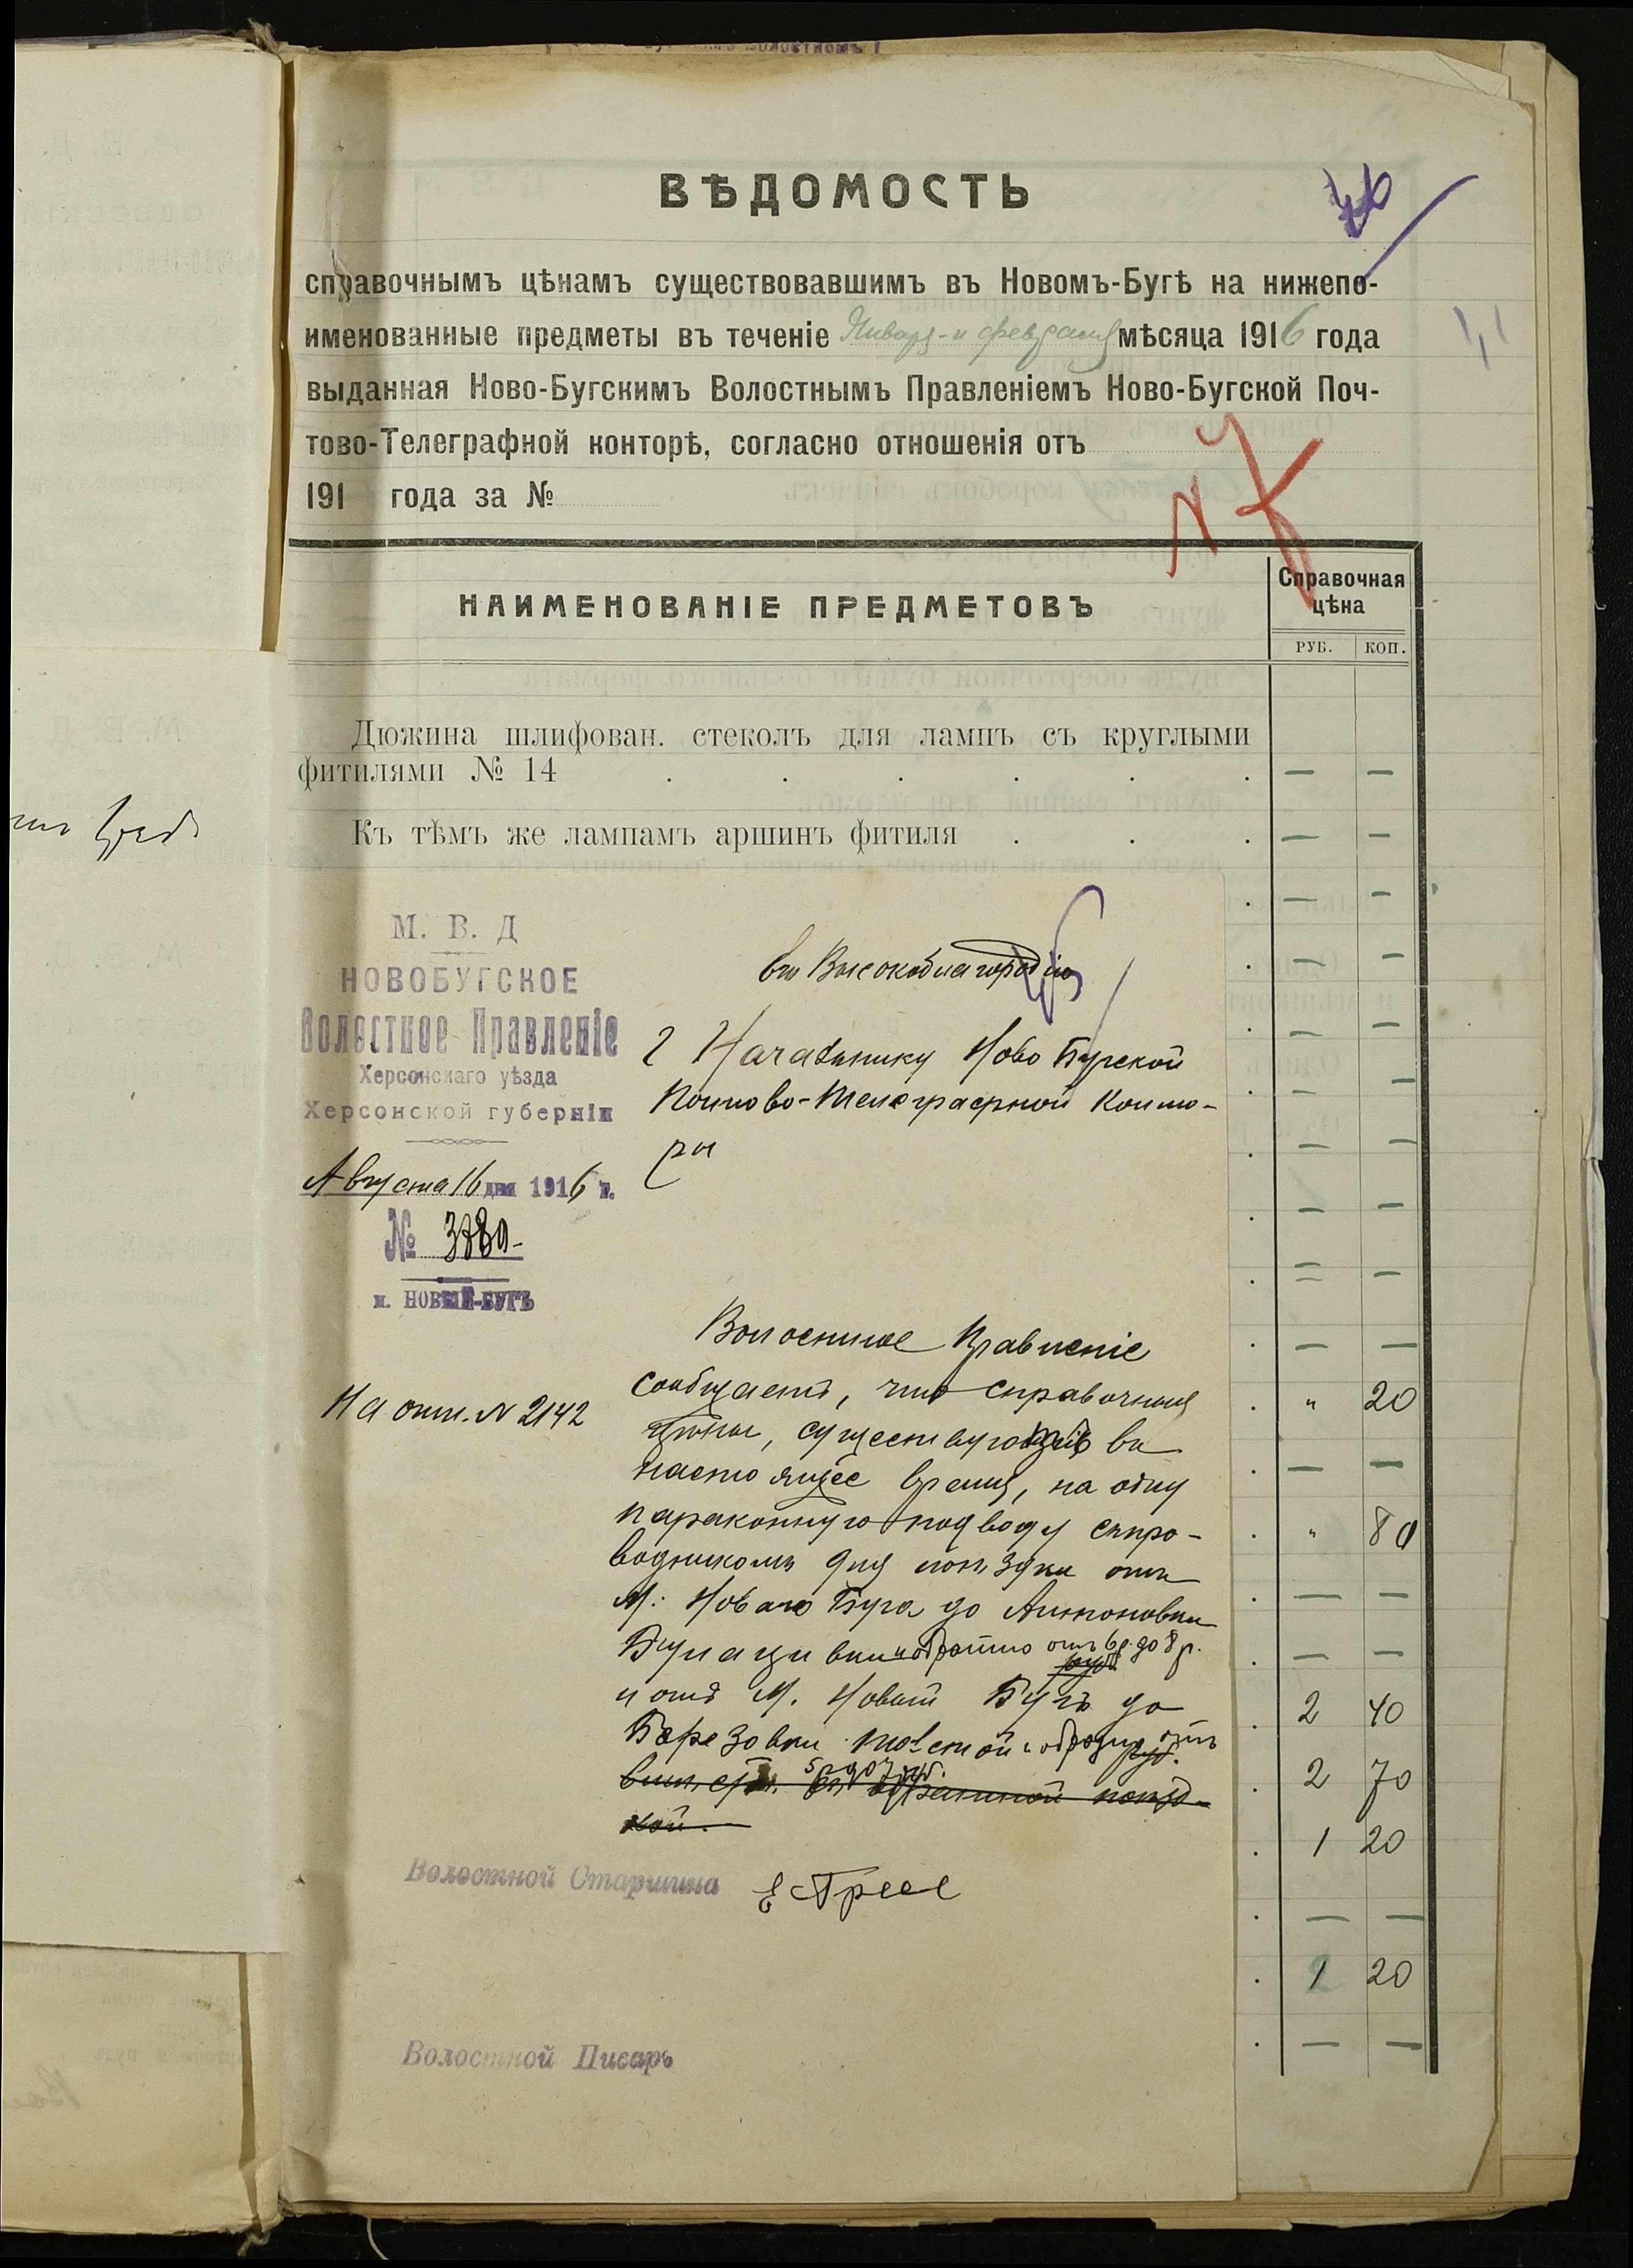 ВѢДОМОСТЬ
справочнымъ цѣнамъ существовавшимъ въ Новомъ-Бугѣ на нижепо-
именованные предметы въ теченіе Января - и февраля мѣсяца 1916 года
выданная Ново-Бугскимъ Волостнымъ Правленіемъ Ново-Бугской Поч-
тово-Телеграфной конторѣ, согласно отношенія отъ
191 года за №
НАИМЕНОВАНІЕ ПРЕДМЕТОВЪ
Справочная
цѣна
РУБ. КОП.
Дюжина шлифован. стеколъ для лампъ съ круглыми
фитилями № 14 . . . . . . — —
Къ тѣмъ же лампамъ аршинъ фитиля . . . — —
. — —
. — —
. — —
. — —
. — —
. — —
. — —
. — —
. " 20
. — —
. " 80
. — —
. — —
. 2 40
. 2 70
. 1 20
. — —
. 1 20
. — —
М. В. Д
НОВОБУГСКОЕ
Волостное Правленіе
Херсонскаго уѣзда
Херсонской губерніи
Августа 16 дня 1916 г.
№
м. НОВЫЙ-БУГЪ
На отн. N 2142
Его Высокоблагородію
Г Начальнику Ново Бугской
Почтово-Телеграфной Конто-
ры
Волостное Правленіе
сообщаетъ, что справочныя
цѣны, существующія въ
настоящее время, на одну
пароконную подводу съ про-
водникомъ для поѣздки отъ
М. Новаго Буга до Антоновки
и обратно отъ 6 р. до 8 р.
и отъ М. Новый Бугъ до
Березовки и обратно отъ
5 р до 7 руб.
обратной поѣзд-
кой.
Волостной Старшина
Волостной Писарь